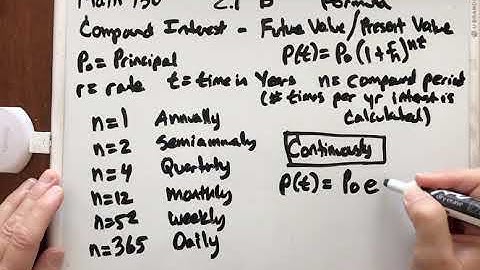 Math 130 2.1 B Formula
Compound Interest - Future Value/Present Value
P₀ = Principal P(t) = P₀(1+r/n)^nt
r = rate t = time in Years n = compound period
(# times per yr interest is
calculated)
n=1 Annually
n=2 Semiannually
n=4 Quarterly
n=12 monthly
n=52 weekly
n=365 Daily
Continuously
P(t) = P₀ e